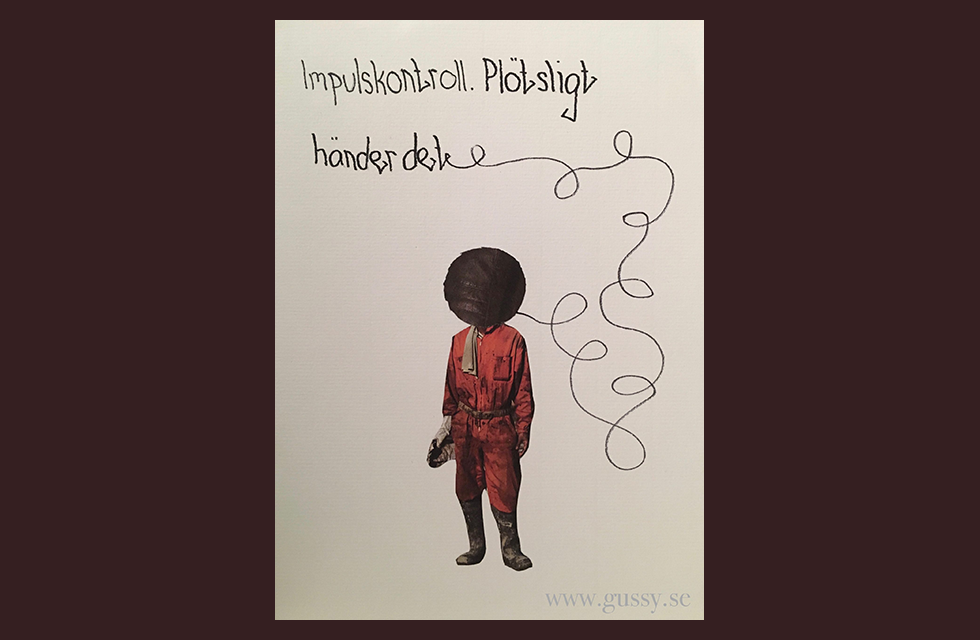 Impulskontroll. Plötsligt
händer det
www.gussy.se